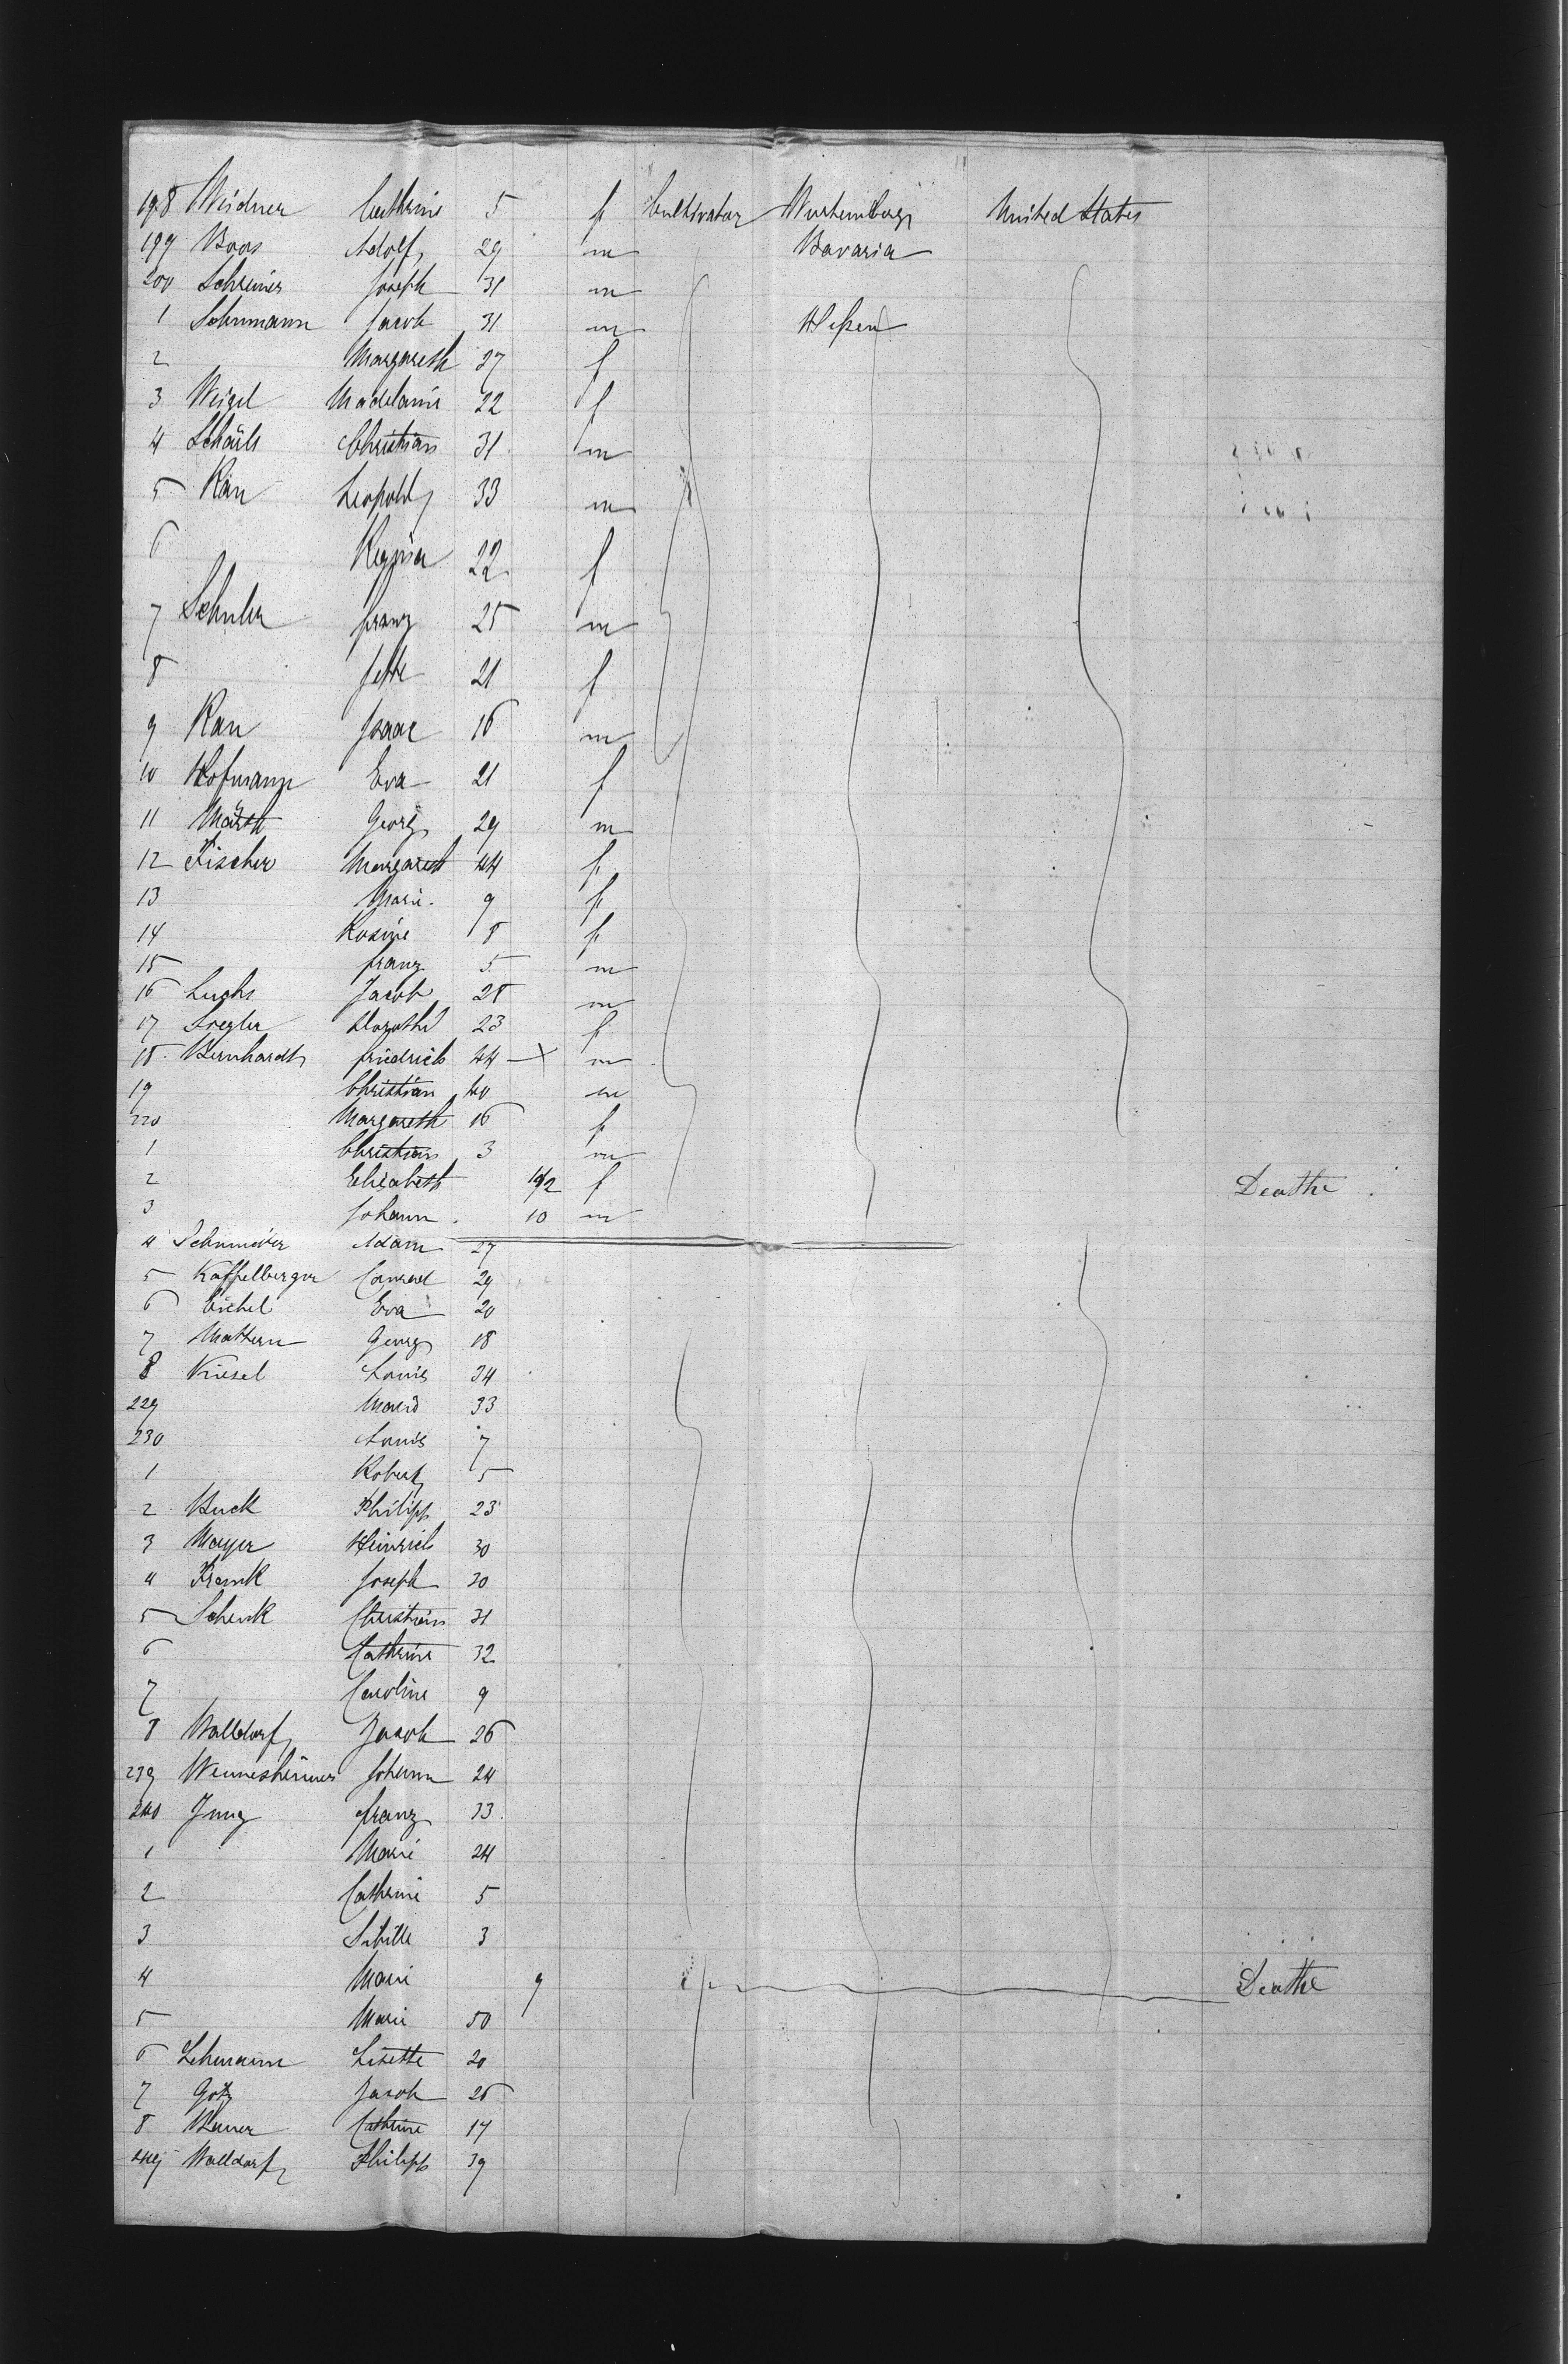 198 Weidner Cathrine 5 f Cultivator Wurtemburg United States
199 Boos Adolf 29 m Bavaria
200 Schreiner Joseph 31 m
1 Schumann Jacob 31 m Hessen
2 Margareth 27 f
3 Weigel Madelaine 22 f
4 Christian 31 m
5 Rau Leopold 33 m
6 Regina 22 f
7 Schuler franz 25 m
8 Jette 21 f
9 Rau Isaac 16 m
10 Hofmann Eva 21 f
11 Georg 29 m
12 Fischer Margareth 44 f
13 Marie 9 f
14 Rosine 8 f
15 franz 5 m
16 Luchs Jacob 28 m
17 23 f
18 Bernhardt friedrich 44 x m
19 Christian 40 m
220 Margareth 16 f
1 Christian 3 m
2 Elisabeth f Deathe
3 Johann 10 m
4 Adam 27
5 Kaffelberger Conrad 29
6 Eichel Eva 20
7 Mattern Georg 18
8 Kiesel Louis 34
229 Marie 33
230 Louis 7
1 Robert 5
2 Buck Philipp 23
3 Mayer Heinrich 30
4 Frank Joseph 30
5 Schenk Christian 31
6 Catherine 32
7 Caroline 9
8 Walldorf Jacob 26
239 Johann 24
240 Jung franz 33
1 Marie 24
2 Catherine 5
3 Sibille 3
4 Marie 9 Deathe
5 Marie 50
6 Lehmann Lisette 20
7 Gotz Jacob 26
8 Catherine 17
249 Walldorf Philipp 39